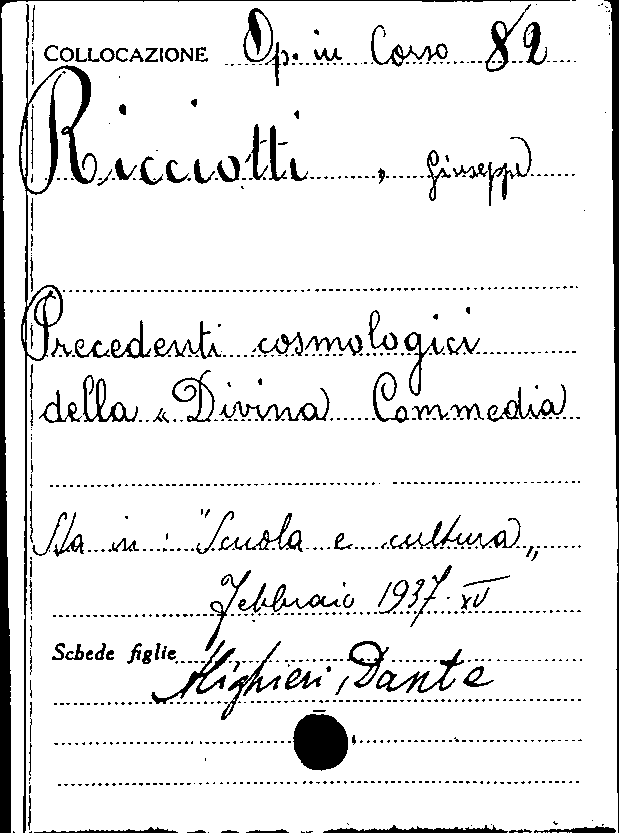 COLLOCAZIONE Op. in Corso 82
Ricciotti, Giuseppe
Precedenti cosmologici
della « Divina Commedia
Sta in: "Scuola e cultura„
Febbraio 1937. XV
Schede figlie Alighieri, Dante